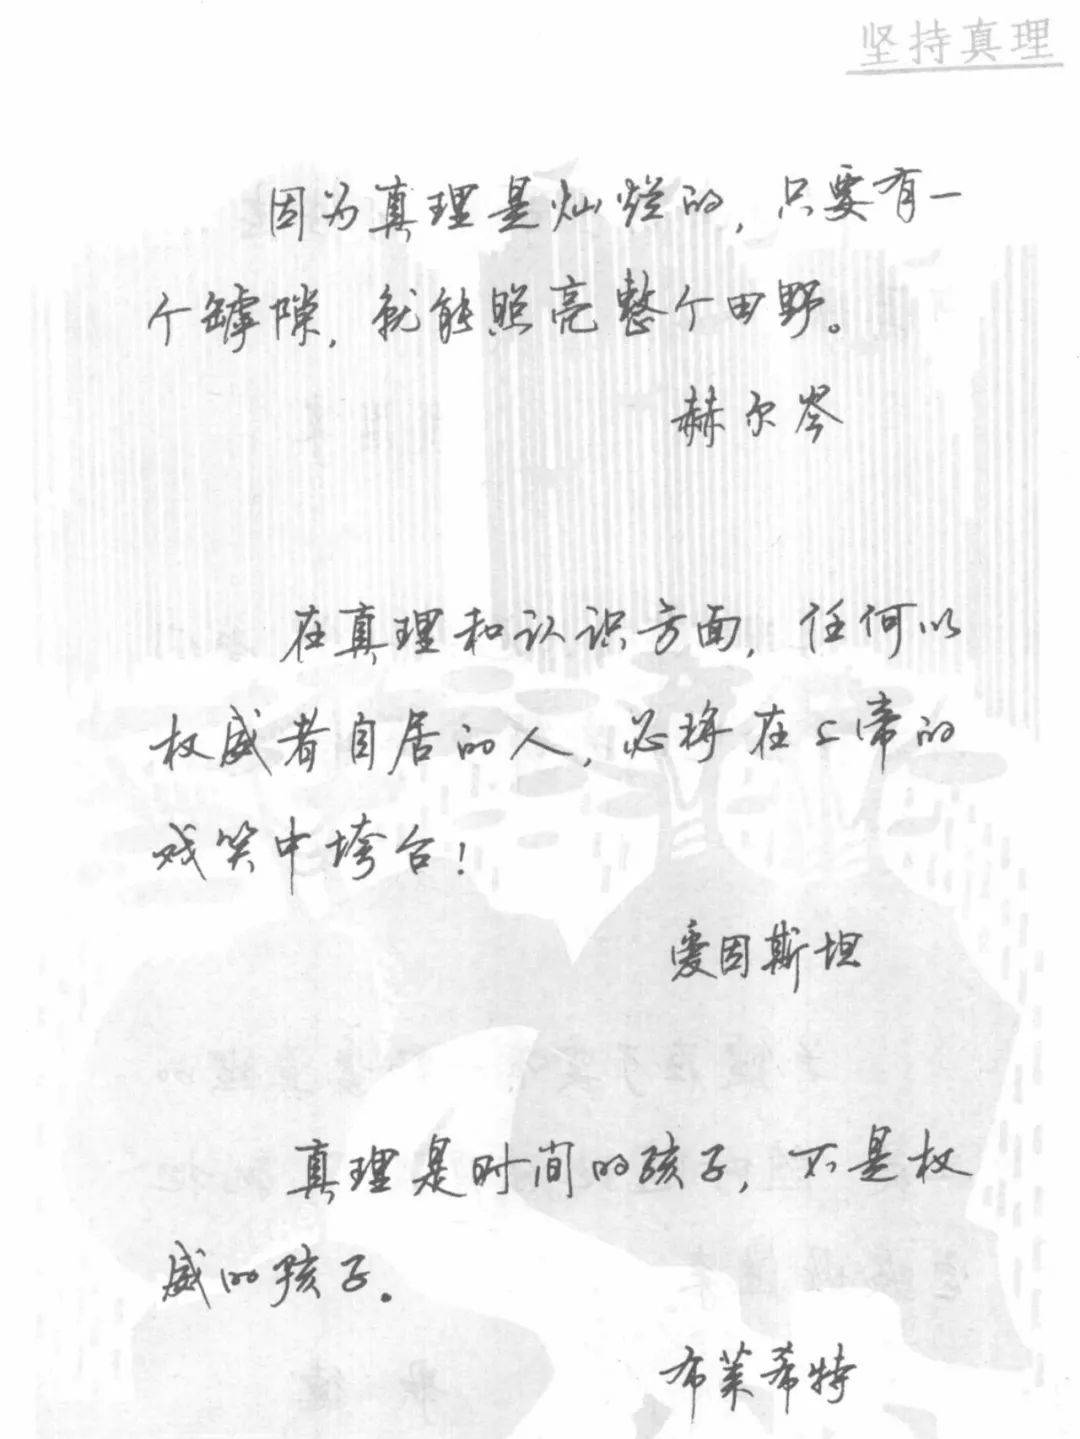 坚持真理
因为真理是灿烂的，只要有一
个罅隙，就能照亮整个田野。
赫尔岑
在真理和认识方面，任何以
权威者自居的人，必将在上帝的
戏笑中垮台！
爱因斯坦
真理是时间的孩子，不是权
威的孩子。
布莱希特